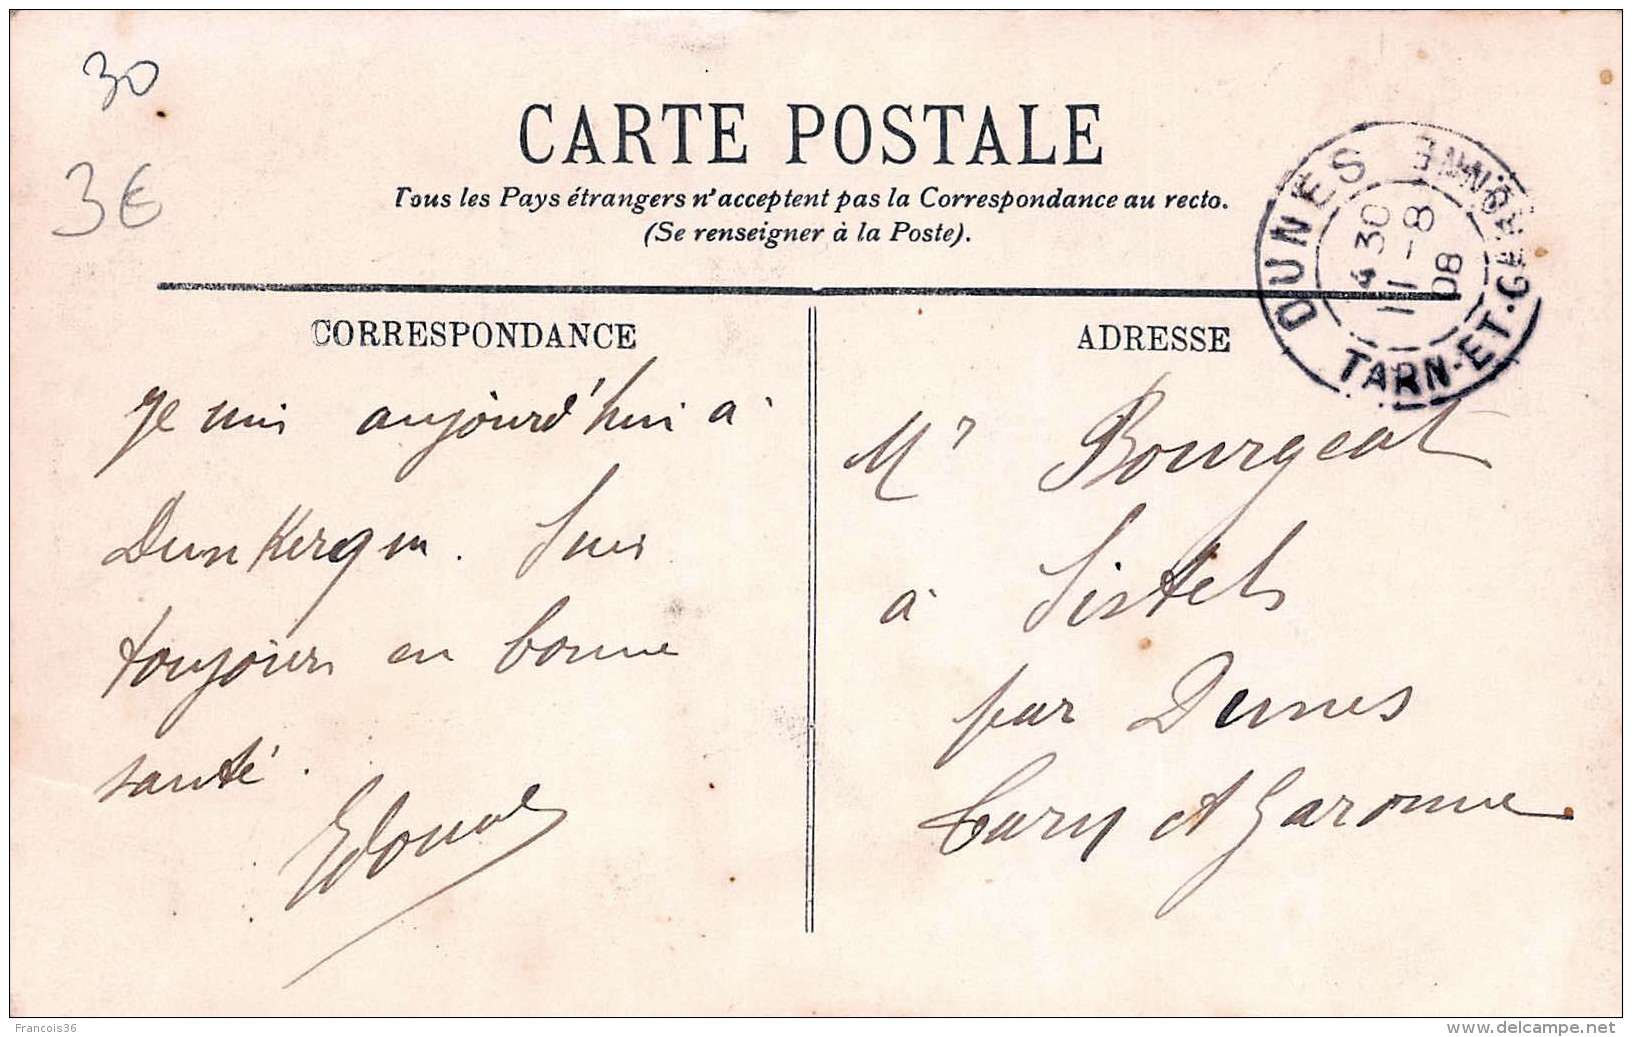 30
3€
CARTE POSTALE
Tous les Pays étrangers n'acceptent pas la Correspondance au recto.
(Se renseigner à la Poste).
DUNES
4 30
11 - 8
08
TARN-ET-GARONNE
CORRESPONDANCE
Je suis aujourd'hui à
Dunkerque. Suis
toujours en bonne
santé.
Edouard
ADRESSE
Mr Bourgeat
à Sistels
par Dunes
Tarn et Garonne
Francois36
www.delcampe.net